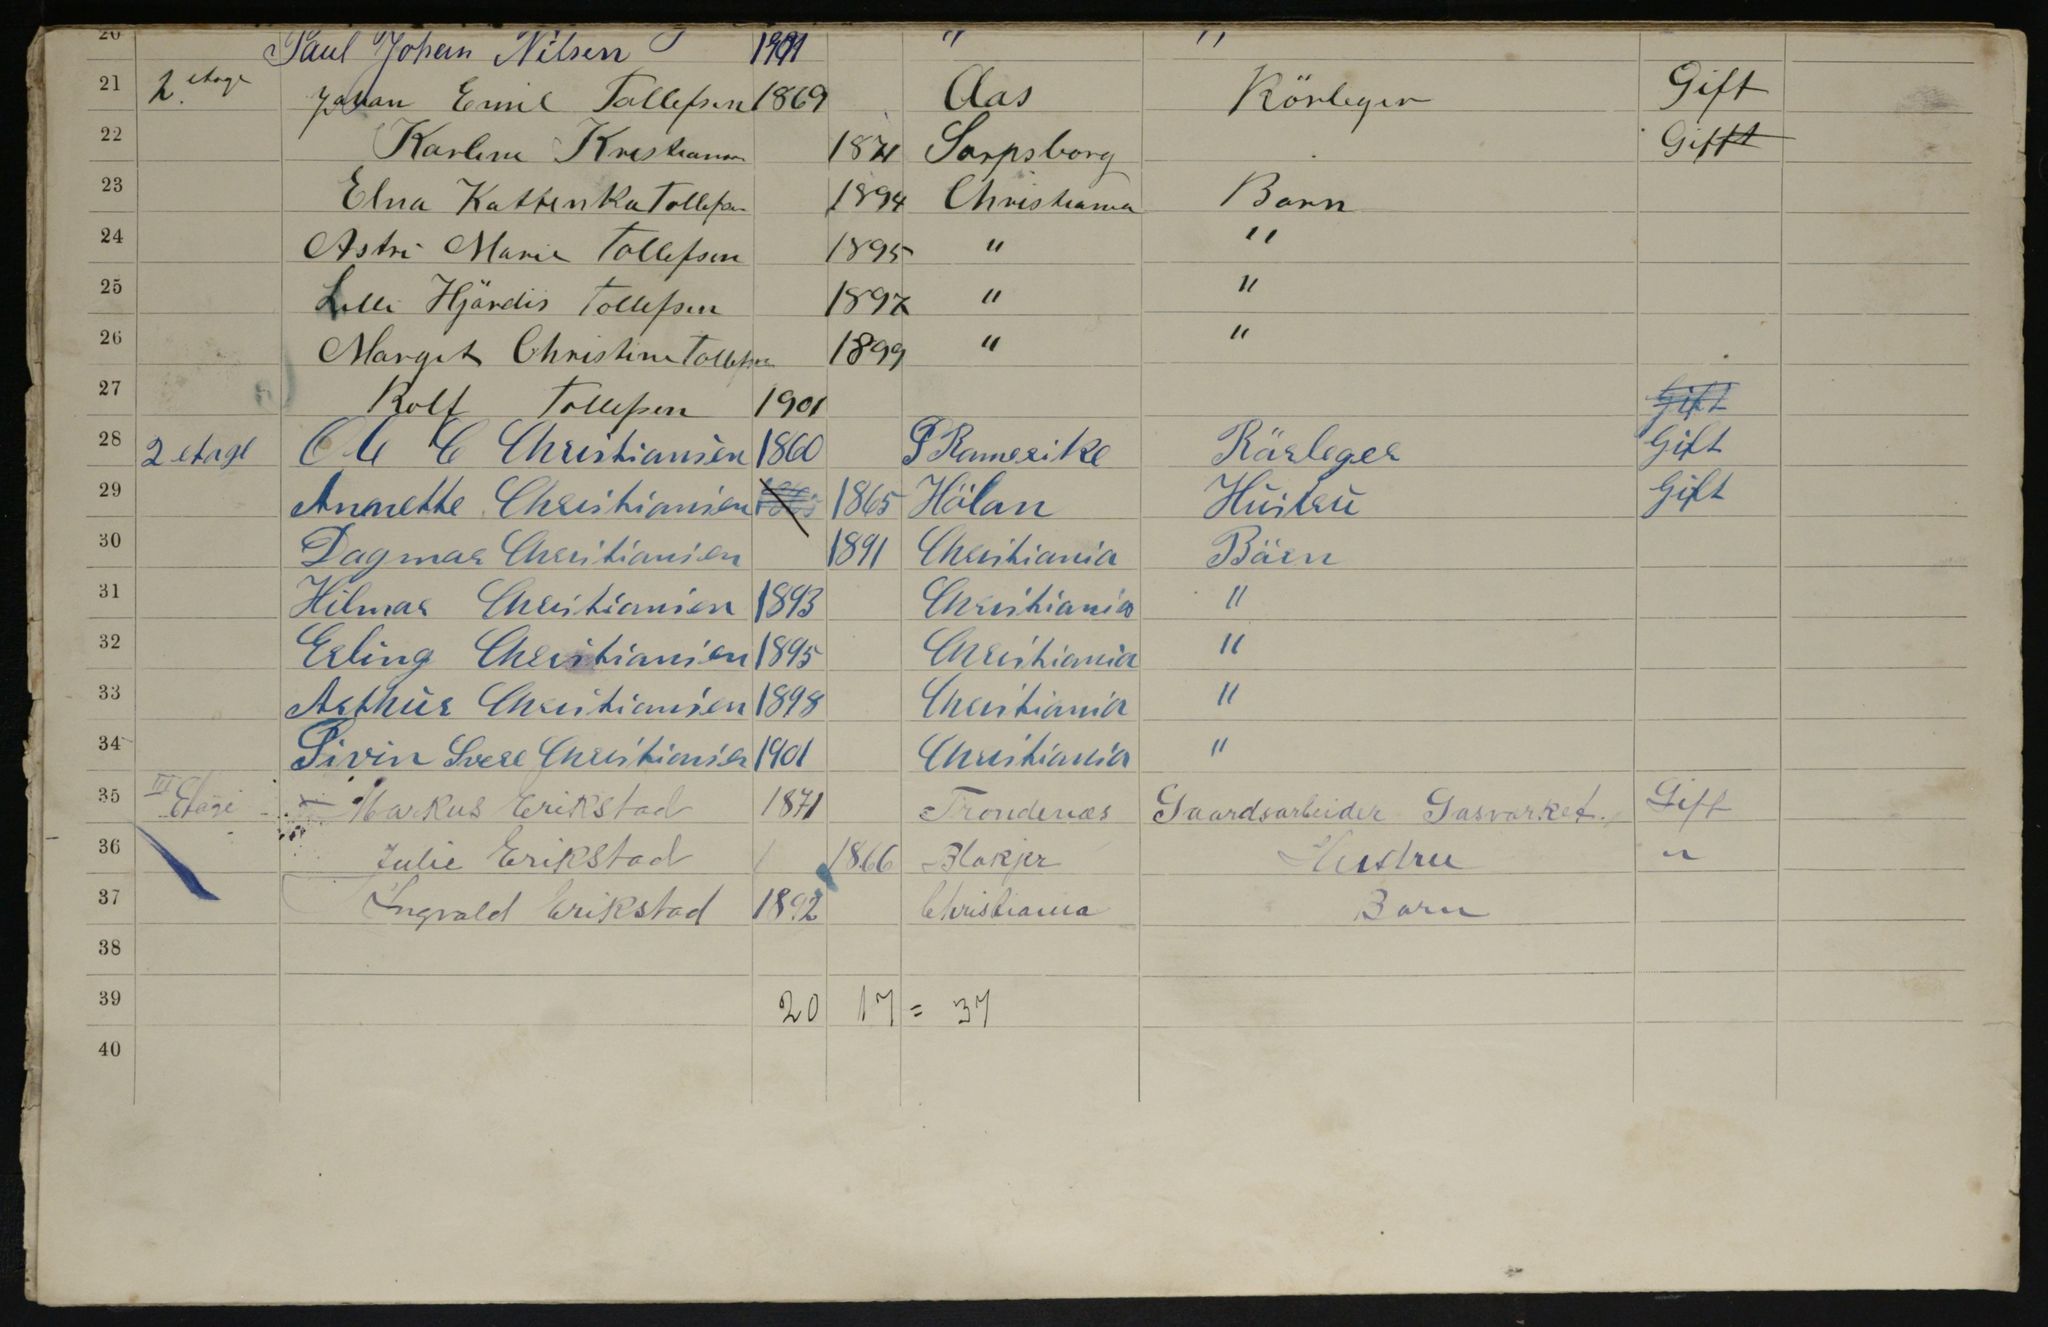 20 Paul Johan Nilsen 1901 " "
21 2 etage Johan Emil Tollefsen 1869 Aas Rörleger Gift
22 Karline Kristianne 1871 Sarpsborg Gift
23 Elna Kattinka Tollefsen 1894 Christiania Barn
24 Astri Marie Tollefsen 1895 " "
25 Lilli Hjördis Tollefsen 1897 " "
26 Margit Christine Tollefsen 1899 " "
27 Rolf Tollefsen 1901 Gift
28 2 etage Ole C Christiansen 1860 Romerike Rörleger Gift
29 Annette Christiansen 1865 1865 Hölan Hüstrü Gift
30 Dagmar Christiansen 1891 Christiania Barn
31 Hilmar Christiansen 1893 Christiania "
32 Erling Christiansen 1895 Christiania "
33 Arthür Christiansen 1898 Christiania "
34 Svere Christiansen 1901 Christiania "
35 III Etage Markus Erikstad 1871 Trondenæs Gaardsarbeider Gasværket. Gift
36 Julie Erikstad 1866 Blakjer Hustru "
37 Ingvald Erikstad 1892 Christiania Barn
38
39 20 17 = 37
40